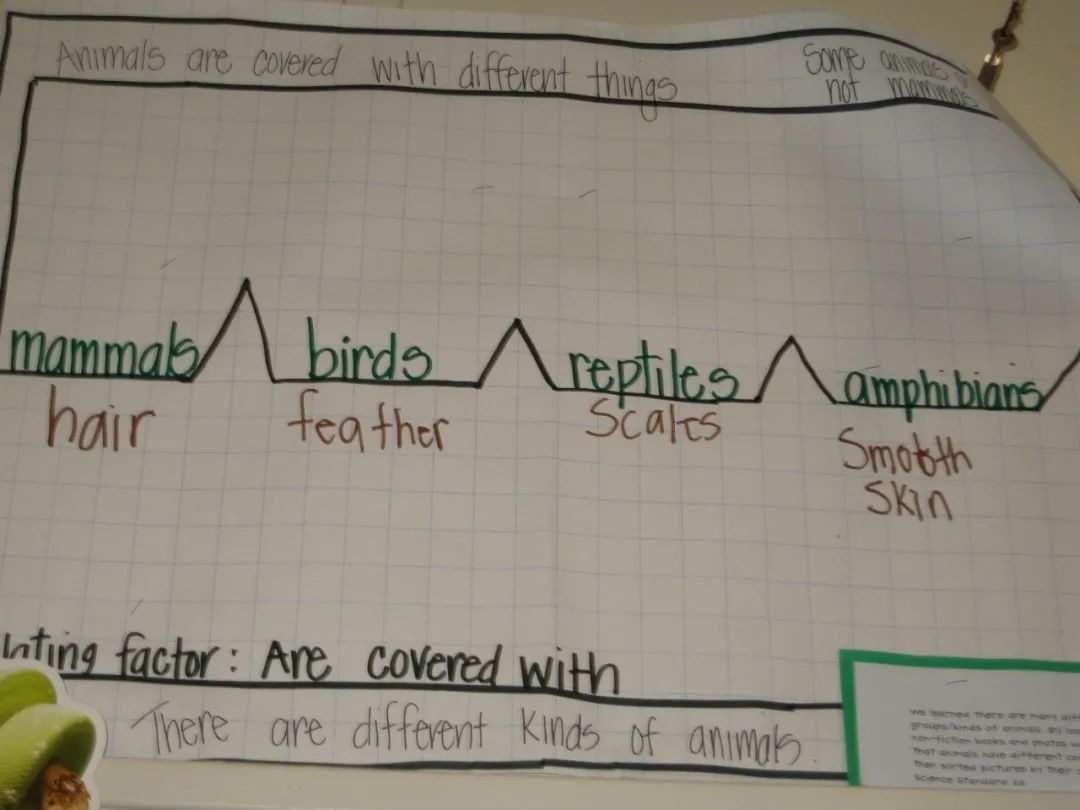 Animals are covered with different things
Some animals
not mammals
mammals birds reptiles amphibians
hair feather Scales Smooth
Skin
factor: Are covered with
There are different Kinds of animals.
We learned there are many
groups/kinds of animals. By
non-fiction books and photos
that animals have different
then sorted pictures by their
Science Standard: 2a